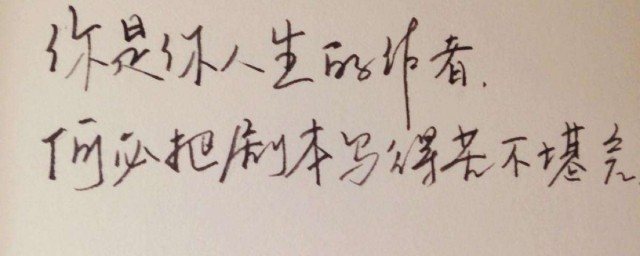 你是你人生的作者.
何必把剧本写得苦不堪言.